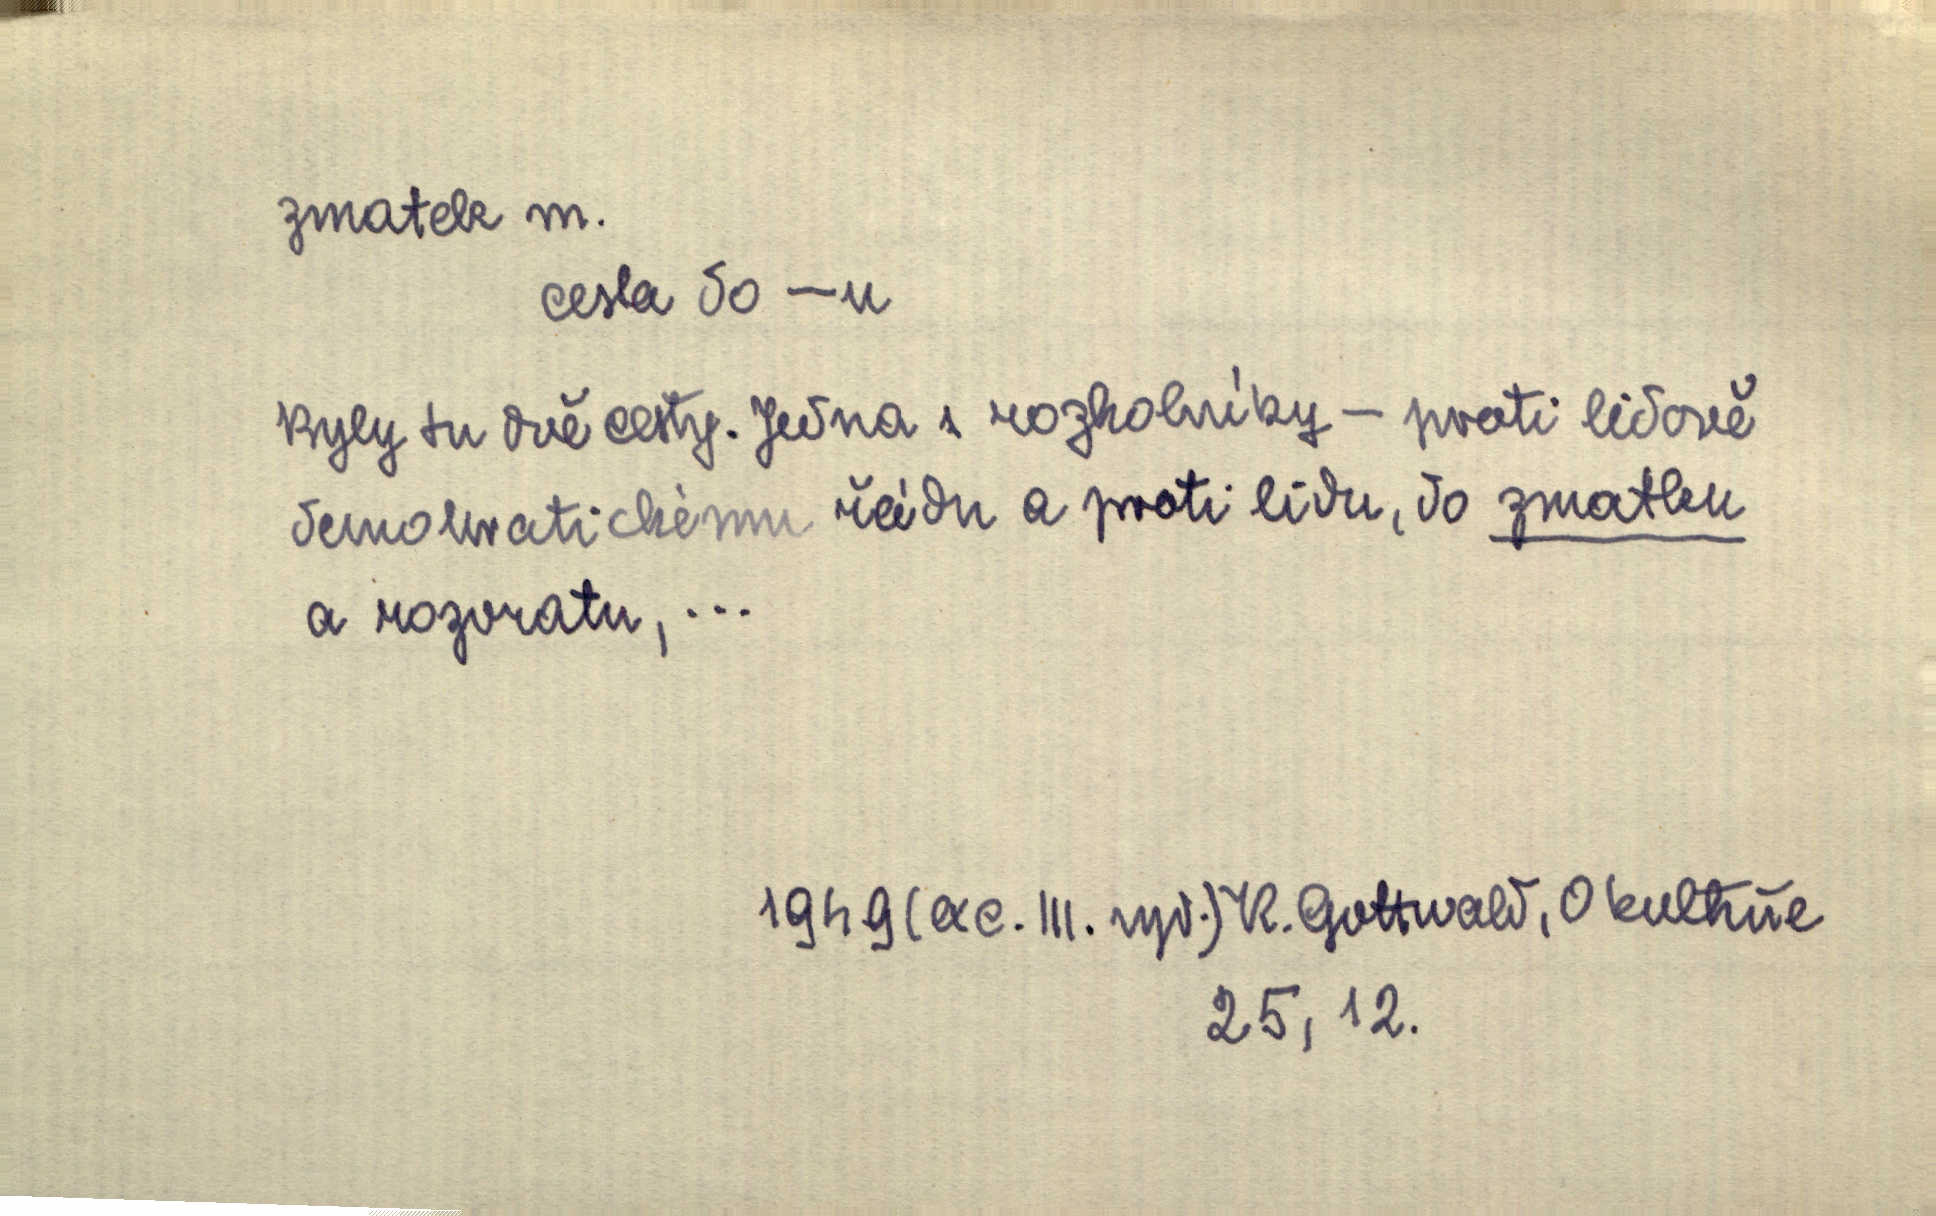 zmatek m.
cesta do —u
Byly tu dvě cesty. Jedna s rozkolníky — proti lidově
demokratickému řádu a proti lidu, do zmatku
a rozvratu, ...
1949 (ac. III. vyd.) K. Gottwald, O kultuře
25, 12.